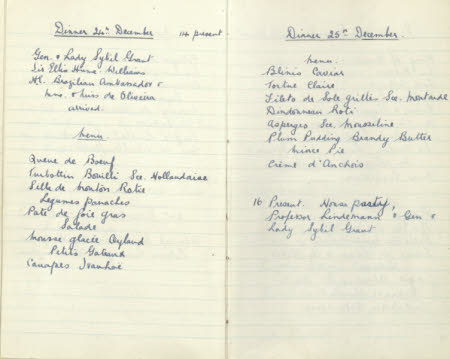 Dinner 24th December 14 present
Gen. & Lady Sybil Grant
Sir Ellis Hume Williams
H.E. Brazilian Ambassador &
Mme. & Miss de Oliveira
arrived.
Menu
Queue de Boeuf
Turbottin Bouilli Sce. Hollandaise
Selle de mouton Rotie
Legumes panachés
Paté de foie gras
Salade
Mousse glacée Ceyland
Petits Gateaux
Canapes Ivanhoe
Dinner 25th December.
Menu.
Blinis Caviar
Tortue Claire
Filets de Sole grillé Sce. Moutarde
Dindonneau Roti
Asperges Sce. Mousseline
Plum Pudding Brandy Butter
Mince Pie
Crème d'Anchois
16 Present. House party,
Professor Lindemann & Gen &
Lady Sybil Grant